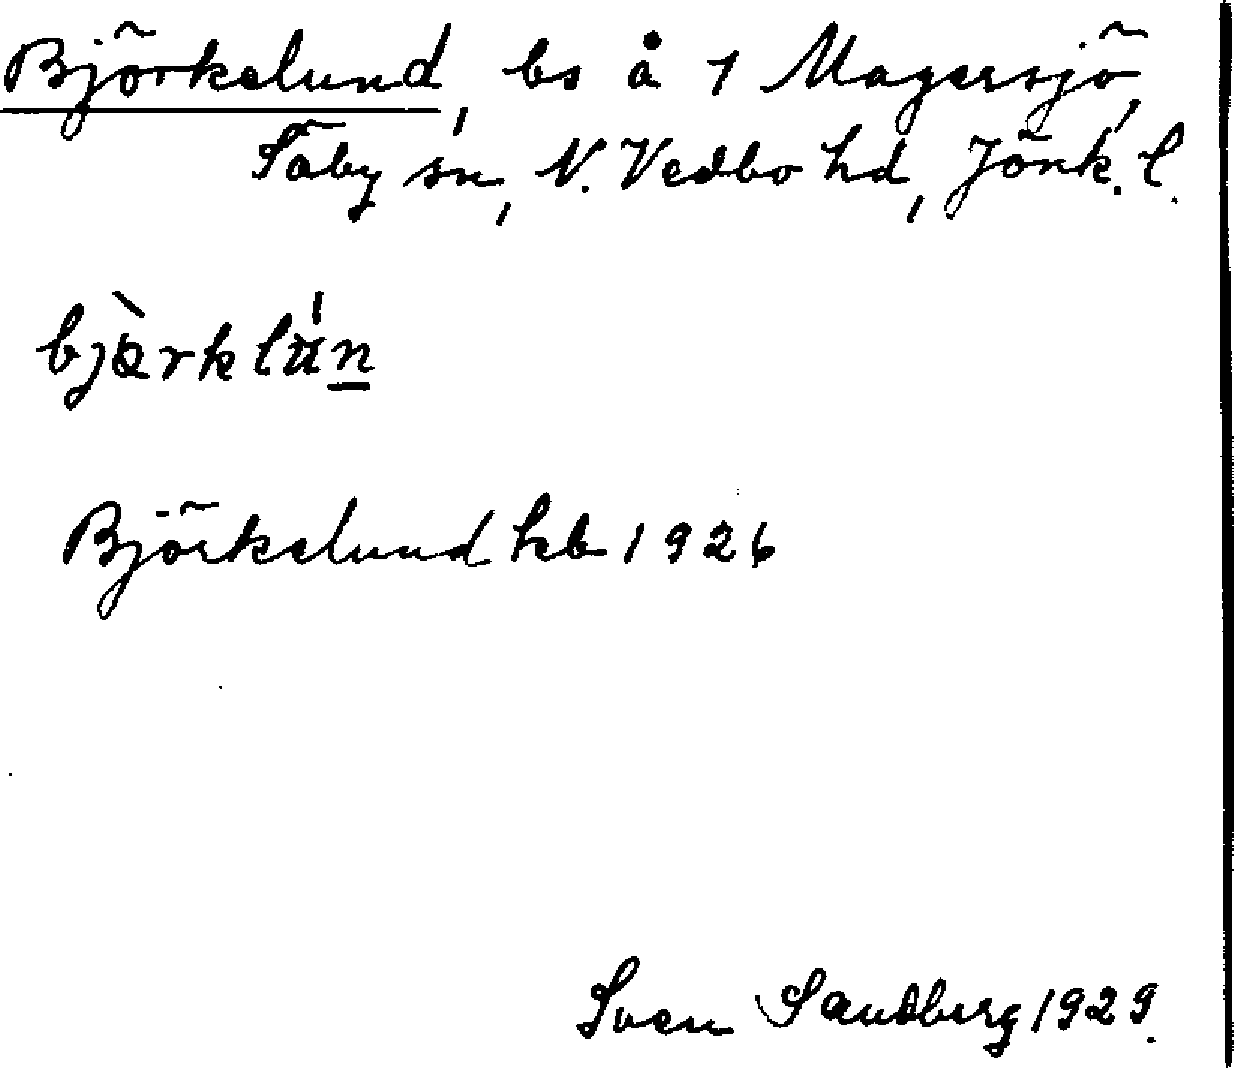 Björkelund, bs å 1 Magersjö,
Säby sn, N. Vedbo hd, Jönk. l.
Björkelund hb 1926
Sven Sandberg 1929.